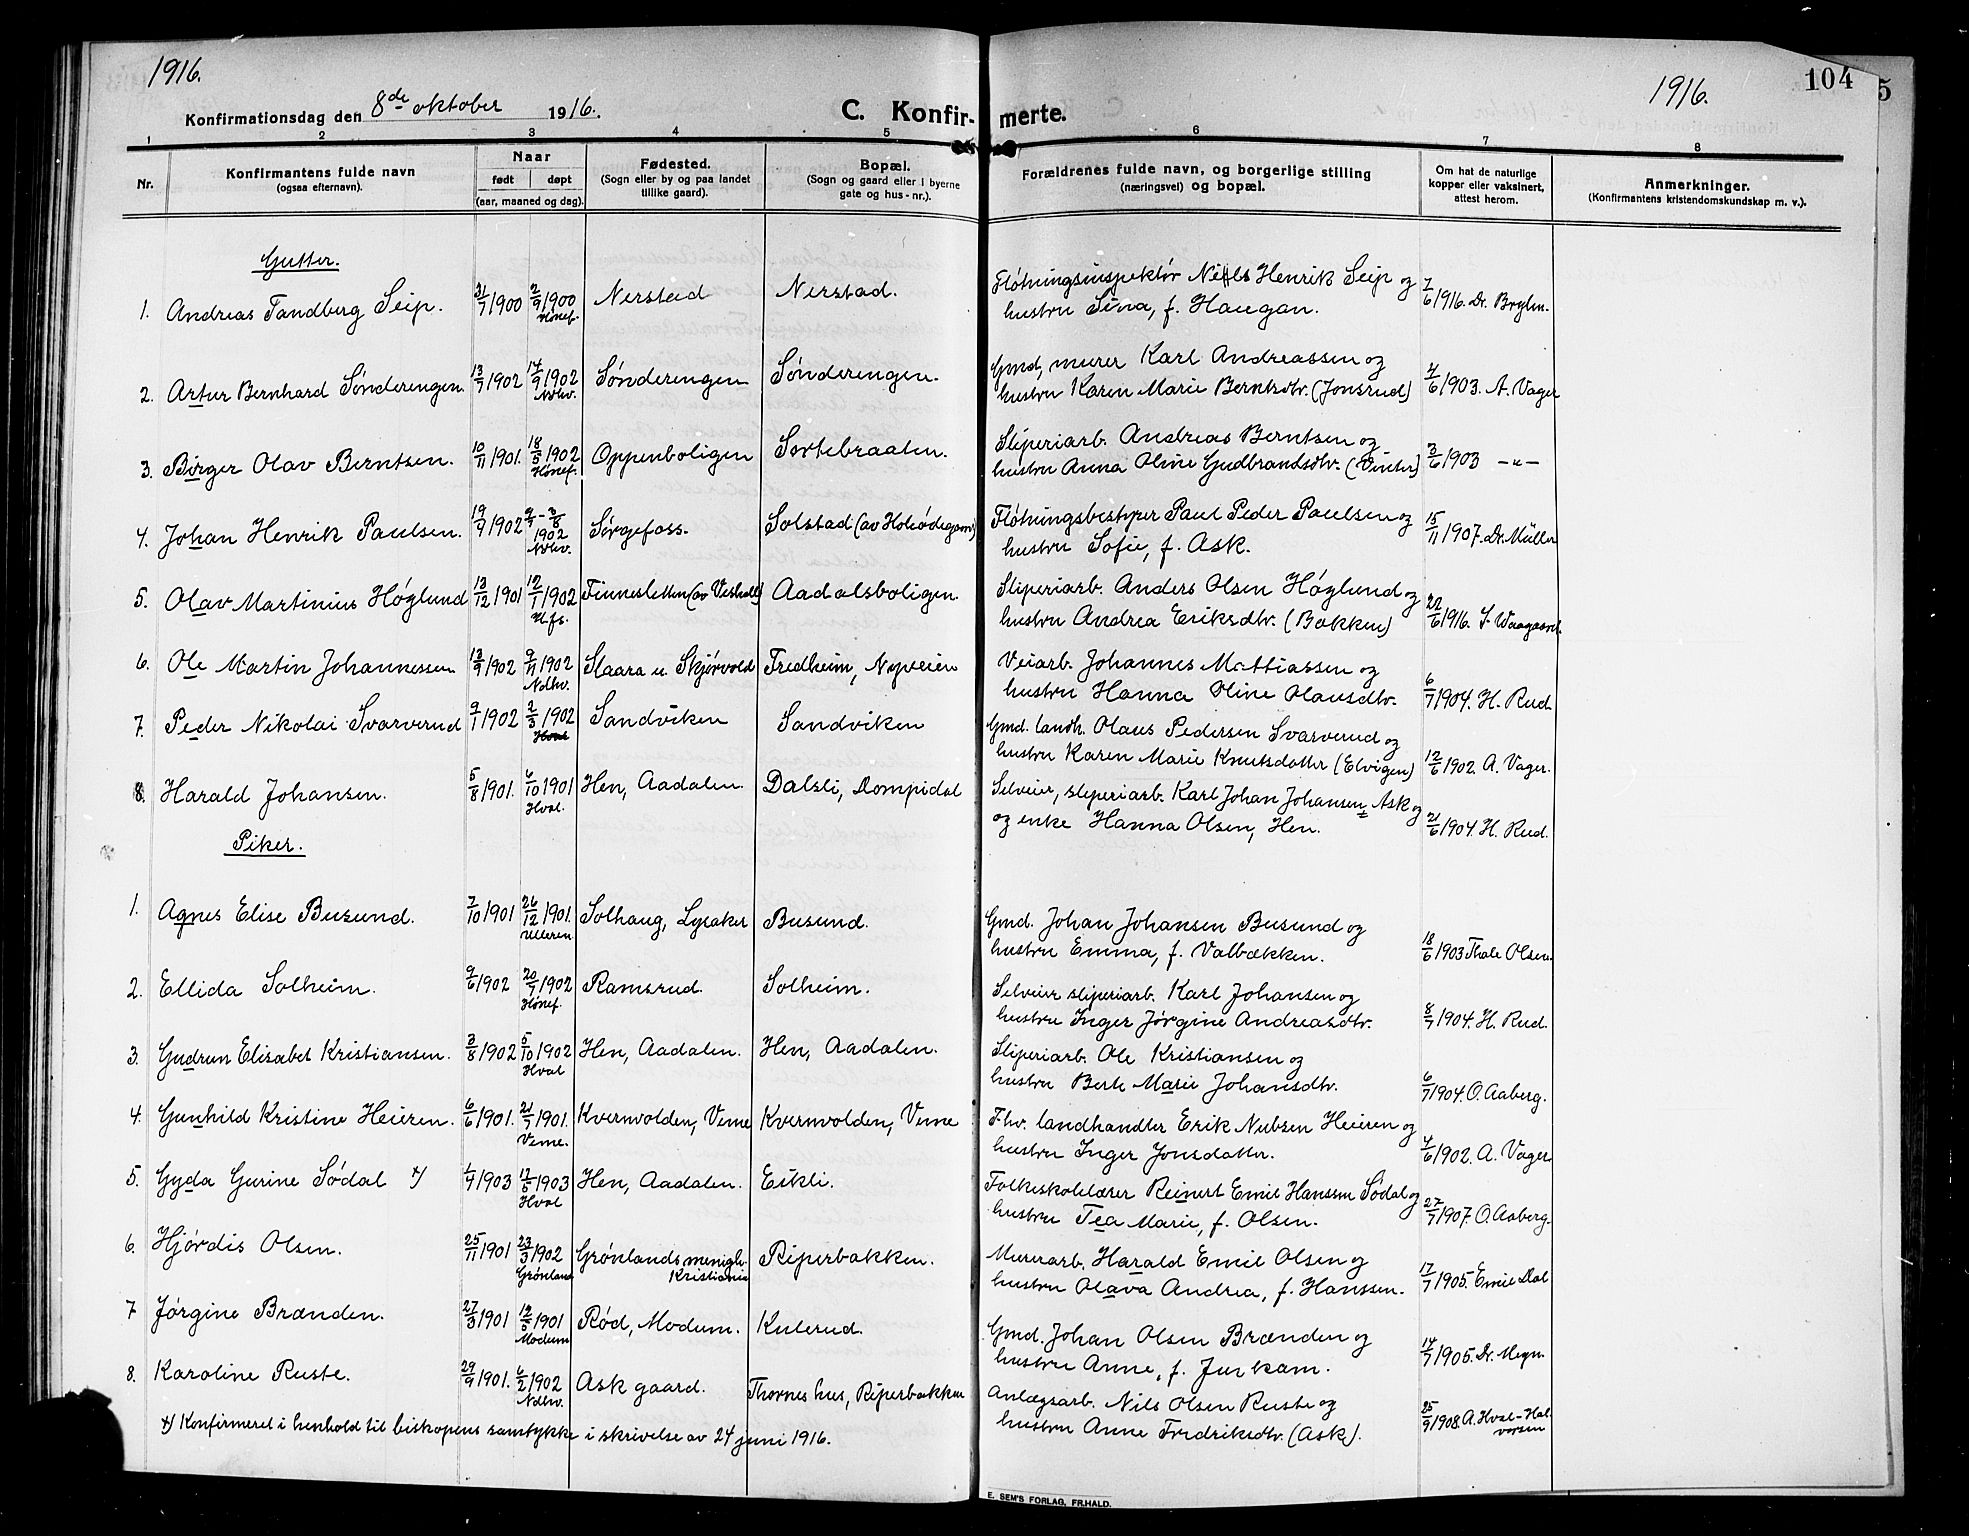 1916.
Konfirmationsdag den 8de oktober 1916.
C. Konfirmerte.
1916.
104
5
1 2 3 4 5 6 7 8
Nr.
Konfirmantens fulde navn
(ogsaa efternavn).
Naar
født døpt
(aar, maaned og dag).
Fødested.
(Sogn eller by og paa landet
tillike gaard).
Bopæl.
(Sogn og gaard eller i byerne
gate og hus-nr.).
Forældrenes fulde navn, og borgerlige stilling
(næringsvei) og bopæl.
Om hat de naturlige
kopper eller vaksinert,
attest herom.
Anmerkninger.
(Konfirmantens kristendomskundskap m. v.).
Gutter.
1. Andreas Tandberg Seip. 31/7 1900 2/9 1900 Hønef. Nerstad Nerstad. Fløtningsinspektør Niels Henrik Seip og
hustru Sina, f. Haugan. 7/6 1916. Dr. Bryhn.
2. Artur Bernhard Sønderengen. 13/7 1902 14/9 1902 Ndhv. Sønderengen Sønderengen. Gmd, murer Karl Andreassen og
hustru Karen Marie Berntsdtr. (Jonsrud) 4/6 1903. A. Vager
3. Birger Olav Berntsen. 10/11 1901. 18/5 1902 Hønef. Oppenboligen Sortebraaten. Sliperiarb. Andreas Berntsen og
hustru Anna Oline Gudbrandsdtr. (Vinter) 3/6 1903 -"-
4. Johan Henrik Paulsen. 19/4 1902 9/7 - 3/8 1902 Ndhv. Sørgefoss. Solstad (av Hofsødegaard) Fløtningsbestyrer Paul Peder Paulsen og
hustru Sofie, f. Ask. 15/11 1907. Dr. Müller
5. Olav Martinius Høglund 13/12 1901 12/1 1902 H.fs. Finnesletten (av Veshall) Aadalsboligen. Sliperiarb. Anders Olsen Høglund og
hustru Andrea Eriksdtr. (Bakken) 22/6 1916. S. Waagaard.
6. Ole Martin Johannessen 13/9 1902 9/11 1902 Ndhv. Slaara u. Skjørvold Fredheim, Nyveien Veiarb. Johannes Mattiassen og
hustru Hanna Oline Olausdtr. 6/7 1904. H. Rud.
7. Peder Nikolai Svarverud 9/1 1902 2/3 1902 Sandviken Sandviken Gmd. landh. Olaus Pedersen Svarverud og
hustru Karen Marie Knutsdatter (Elvigen) 12/6 1902. A. Vager.
8. Harald Johansen. 5/8 1901. 6/10 1901 Hval. Hen, Aadalen. Dalsli, Dompidal Selveier, sliperiarb. Karl Johan Johansen, Ask og
og enke Hanna Olsen, Hen. 21/6 1904. H. Rud.
Piker.
1. Agnes Elise Busund. 7/10 1901 26/12 1901. Ulleren Solhaug, Lysaker Busund. Gmd. Johan Johansen Busund og
hustru Emma, f. Valbækken. 18/6 1903 Thale Olsen.
2. Ellida Solheim. 9/6 1902 20/7 1902 Hønef. Ramsrud. Solheim. Selveier sliperiarb. Karl Johansen og
hustru Inger Jørgine Andreasdtr. 8/7 1904. H. Rud.
3. Gudrun Elisabet Kristiansen. 3/8 1902 5/10 1902 Hval Hen, Aadalen. Hen, Aadalen. Sliperiarb. Ole Kristiansen og
hustru Berte Marie Johansdtr. 6/7 1904. O. Aaberg.
4. Gunhild Kristine Heieren. 6/6 1901. 21/7 1901. Veme. Kvernvolden, Veme Kvernvolden, Veme Fhv. landhandler Erik Nubsen Heieren og
hustru Inger Jonsdatter. 4/6 1902. A. Vager.
5. Gyda Gurine Sødal x) 1/4 1903 17/5 1903 Hval Hen, Aadalen. Eikli. Folkeskolelærer Reinert Emil Hanssen Sødal og
hustru Tea Marie, f. Olsen. 27/7 1907. O. Aaberg.
6. Hjørdis Olsen. 25/11 1901 23/3 1902 Grønland Grønlands menigh. Kristiania Piperbakken. Murerarb. Harald Emil Olsen og
hustru Olava Andrea, f. Hanssen. 17/7 1905. Emil Dal
7 Jørgine Brænden. 27/3 1901 12/5 1901 Modum Rød, Modum. Kulerud. Gmd. Johan Olsen Brænden og
hustru Anne, f. Jurkam. 14/7 1905. Dr. Megn.
8. Karoline Ruste. 29/9 1901. 6/2 1902 Ndhv. Ask gaard. Thornes hus, Piperbakken Anlægsarb. Nils Olsen Ruste og
hustru Anne Fredriksdtr. (Ask). 25/9 1908. A. Hval-Halvorsen
x) Konfirmeret i henhold til biskopens samtykke i skrivelse av 24 juni 1916.
E. SEM'S FORLAG, FR.HALD.